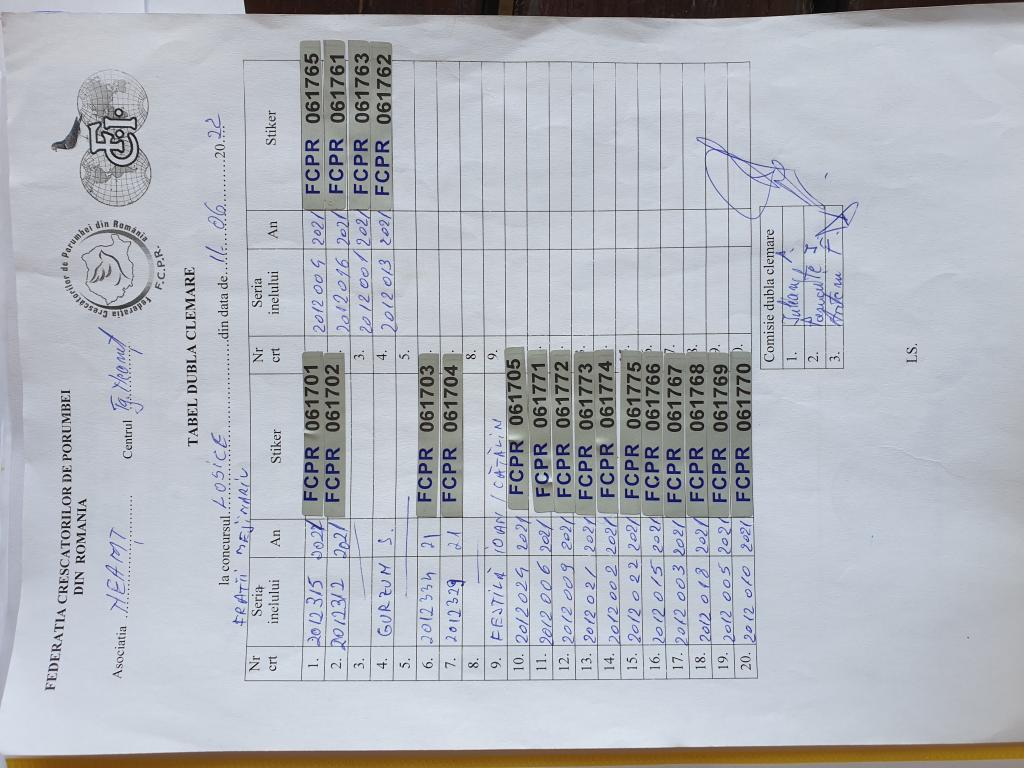 FEDERATIA CRESCATORILOR DE PORUMBEI
DIN ROMANIA
Federația Crescătorilor de Porumbei din România
F.C.P.R.
FCI
Asociatia NEAMT Centrul Tg. Neamt
TABEL DUBLA CLEMARE
la concursul LOSICE din data de 11.06.2022
FRATII MEJINARIU
Nr crt Seria inelului An Stiker Nr crt Seria inelului An Stiker
1. 2012315 2021 FCPR 061701 2012004 2021 FCPR 061765
2. 2012312 2021 FCPR 061702 2012016 2021 FCPR 061761
3. 3. 2012001 2021 FCPR 061763
4. GURZUM S. 4. 2012013 2021 FCPR 061762
5. 5.
6. 2012334 21 FCPR 061703
7. 2012329 21 FCPR 061704
8. 8.
9. FESTILĂ IOAN / CĂTĂLIN 9.
10. 2012024 2021 FCPR 061705
11. 2012006 2021 FCPR 061771
12. 2012009 2021 FCPR 061772
13. 2012021 2021 FCPR 061773
14. 2012002 2021 FCPR 061774
15. 2012022 2021 FCPR 061775
16. 2012015 2021 FCPR 061766
17. 2012003 2021 FCPR 061767 7.
18. 2012018 2021 FCPR 061768 8.
19. 2012005 2021 FCPR 061769 9.
20. 2012010 2021 FCPR 061770
Comisie dubla clemare
1.
2.
3.
I.S.